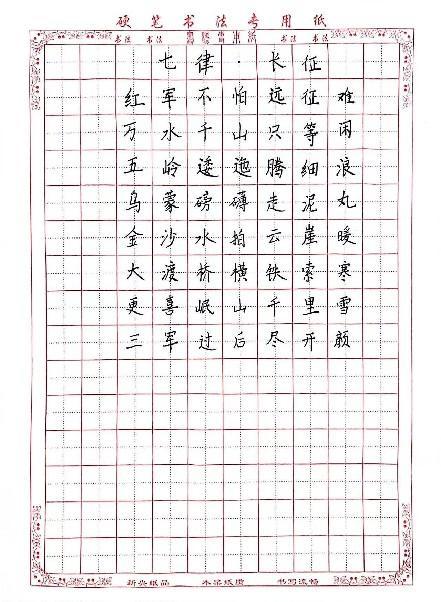 硬笔书法专用纸
书法 书法 书法 书法
七律·长征
红军不怕远征难
万水千山只等闲
五岭逶迤腾细浪
乌蒙磅礴走泥丸
金沙水拍云崖暖
大渡桥横铁索寒
更喜岷山千里雪
三军过后尽开颜
书写流畅